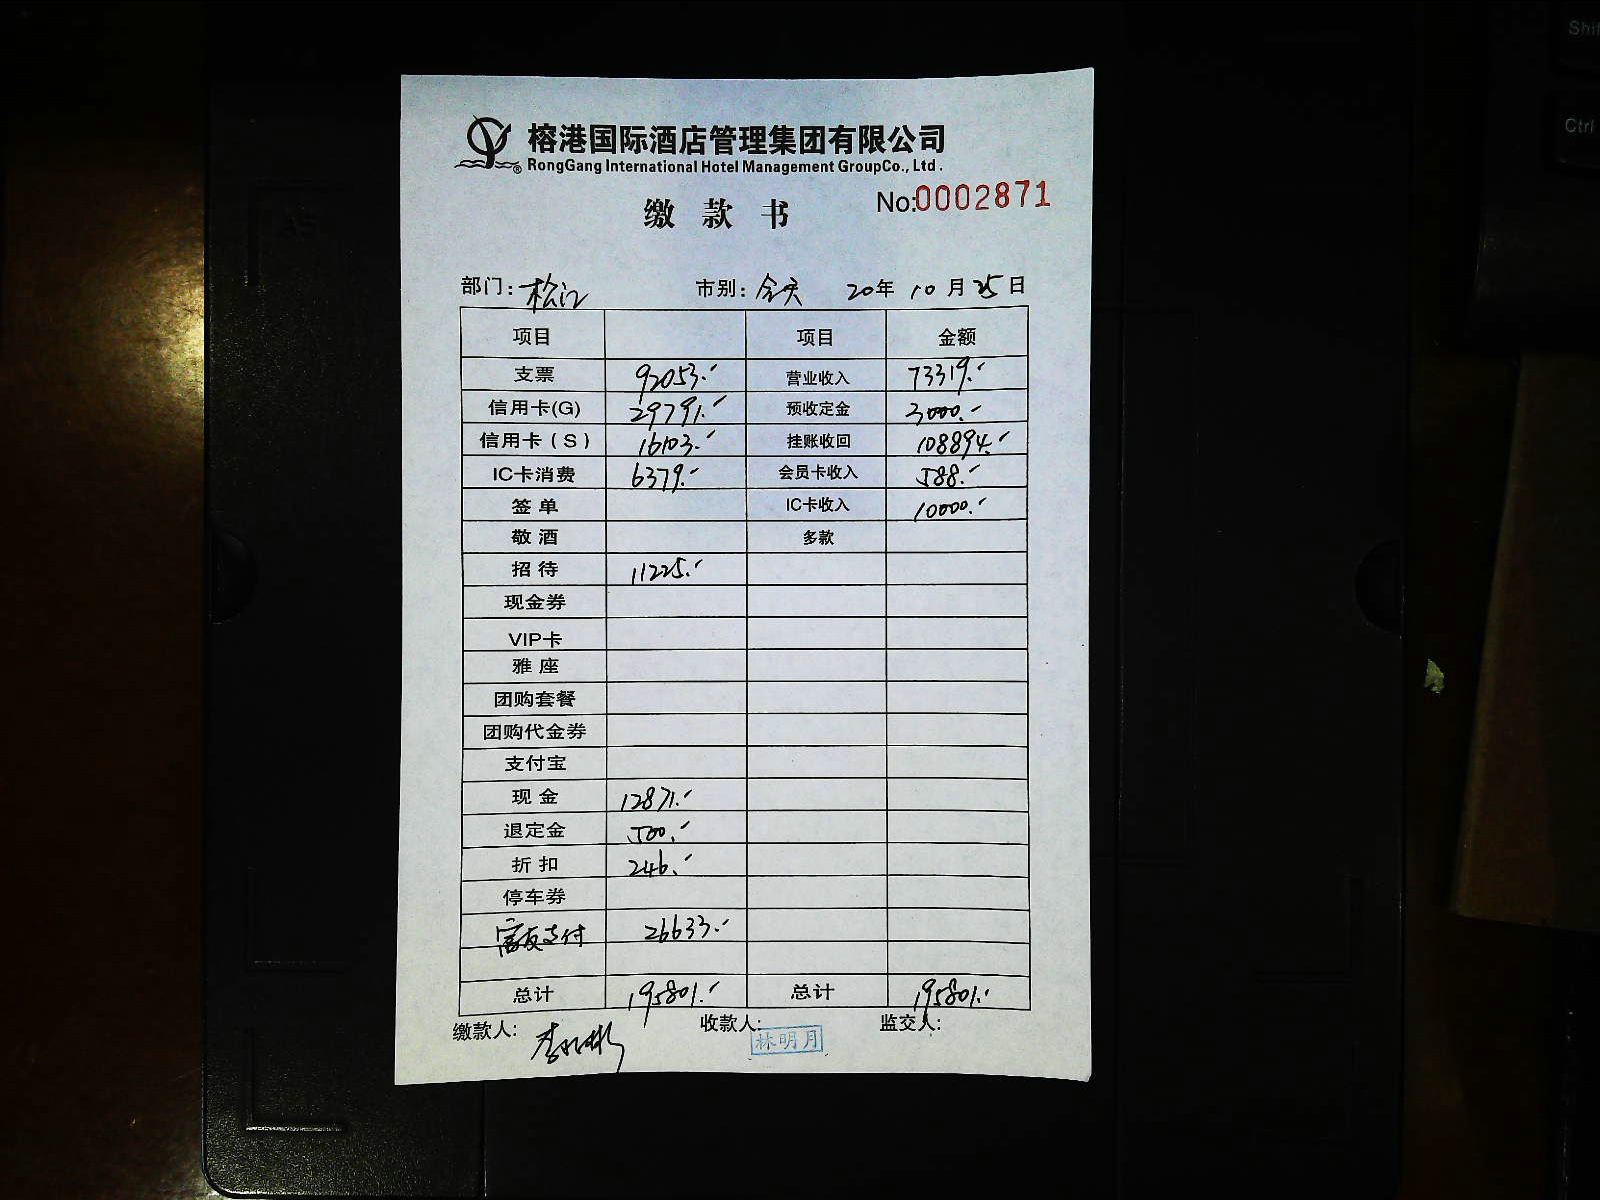 榕港国际酒店管理集团有限公司
® RongGang International Hotel Management GroupCo., Ltd.
缴款书 No:0002871
部门: 松江 市别: 全天 20年 10月 25日
项目 项目 金额
支票 92053.- 营业收入 73319.-
信用卡(G) 29791.- 预收定金 3000.-
信用卡(S) 16103.- 挂账收回 108894.-
IC卡消费 6379.- 会员卡收入 588.-
签单 IC卡收入 10000.-
敬酒 多款
招待 11225.-
现金券
VIP卡
雅座
团购套餐
团购代金券
支付宝
现金 12871.-
退定金 500.-
折扣 246.-
停车券
富友支付 26633.-
总计 195801.- 总计 195801.-
缴款人: 收款人: 林明月 监交人:
Ctrl